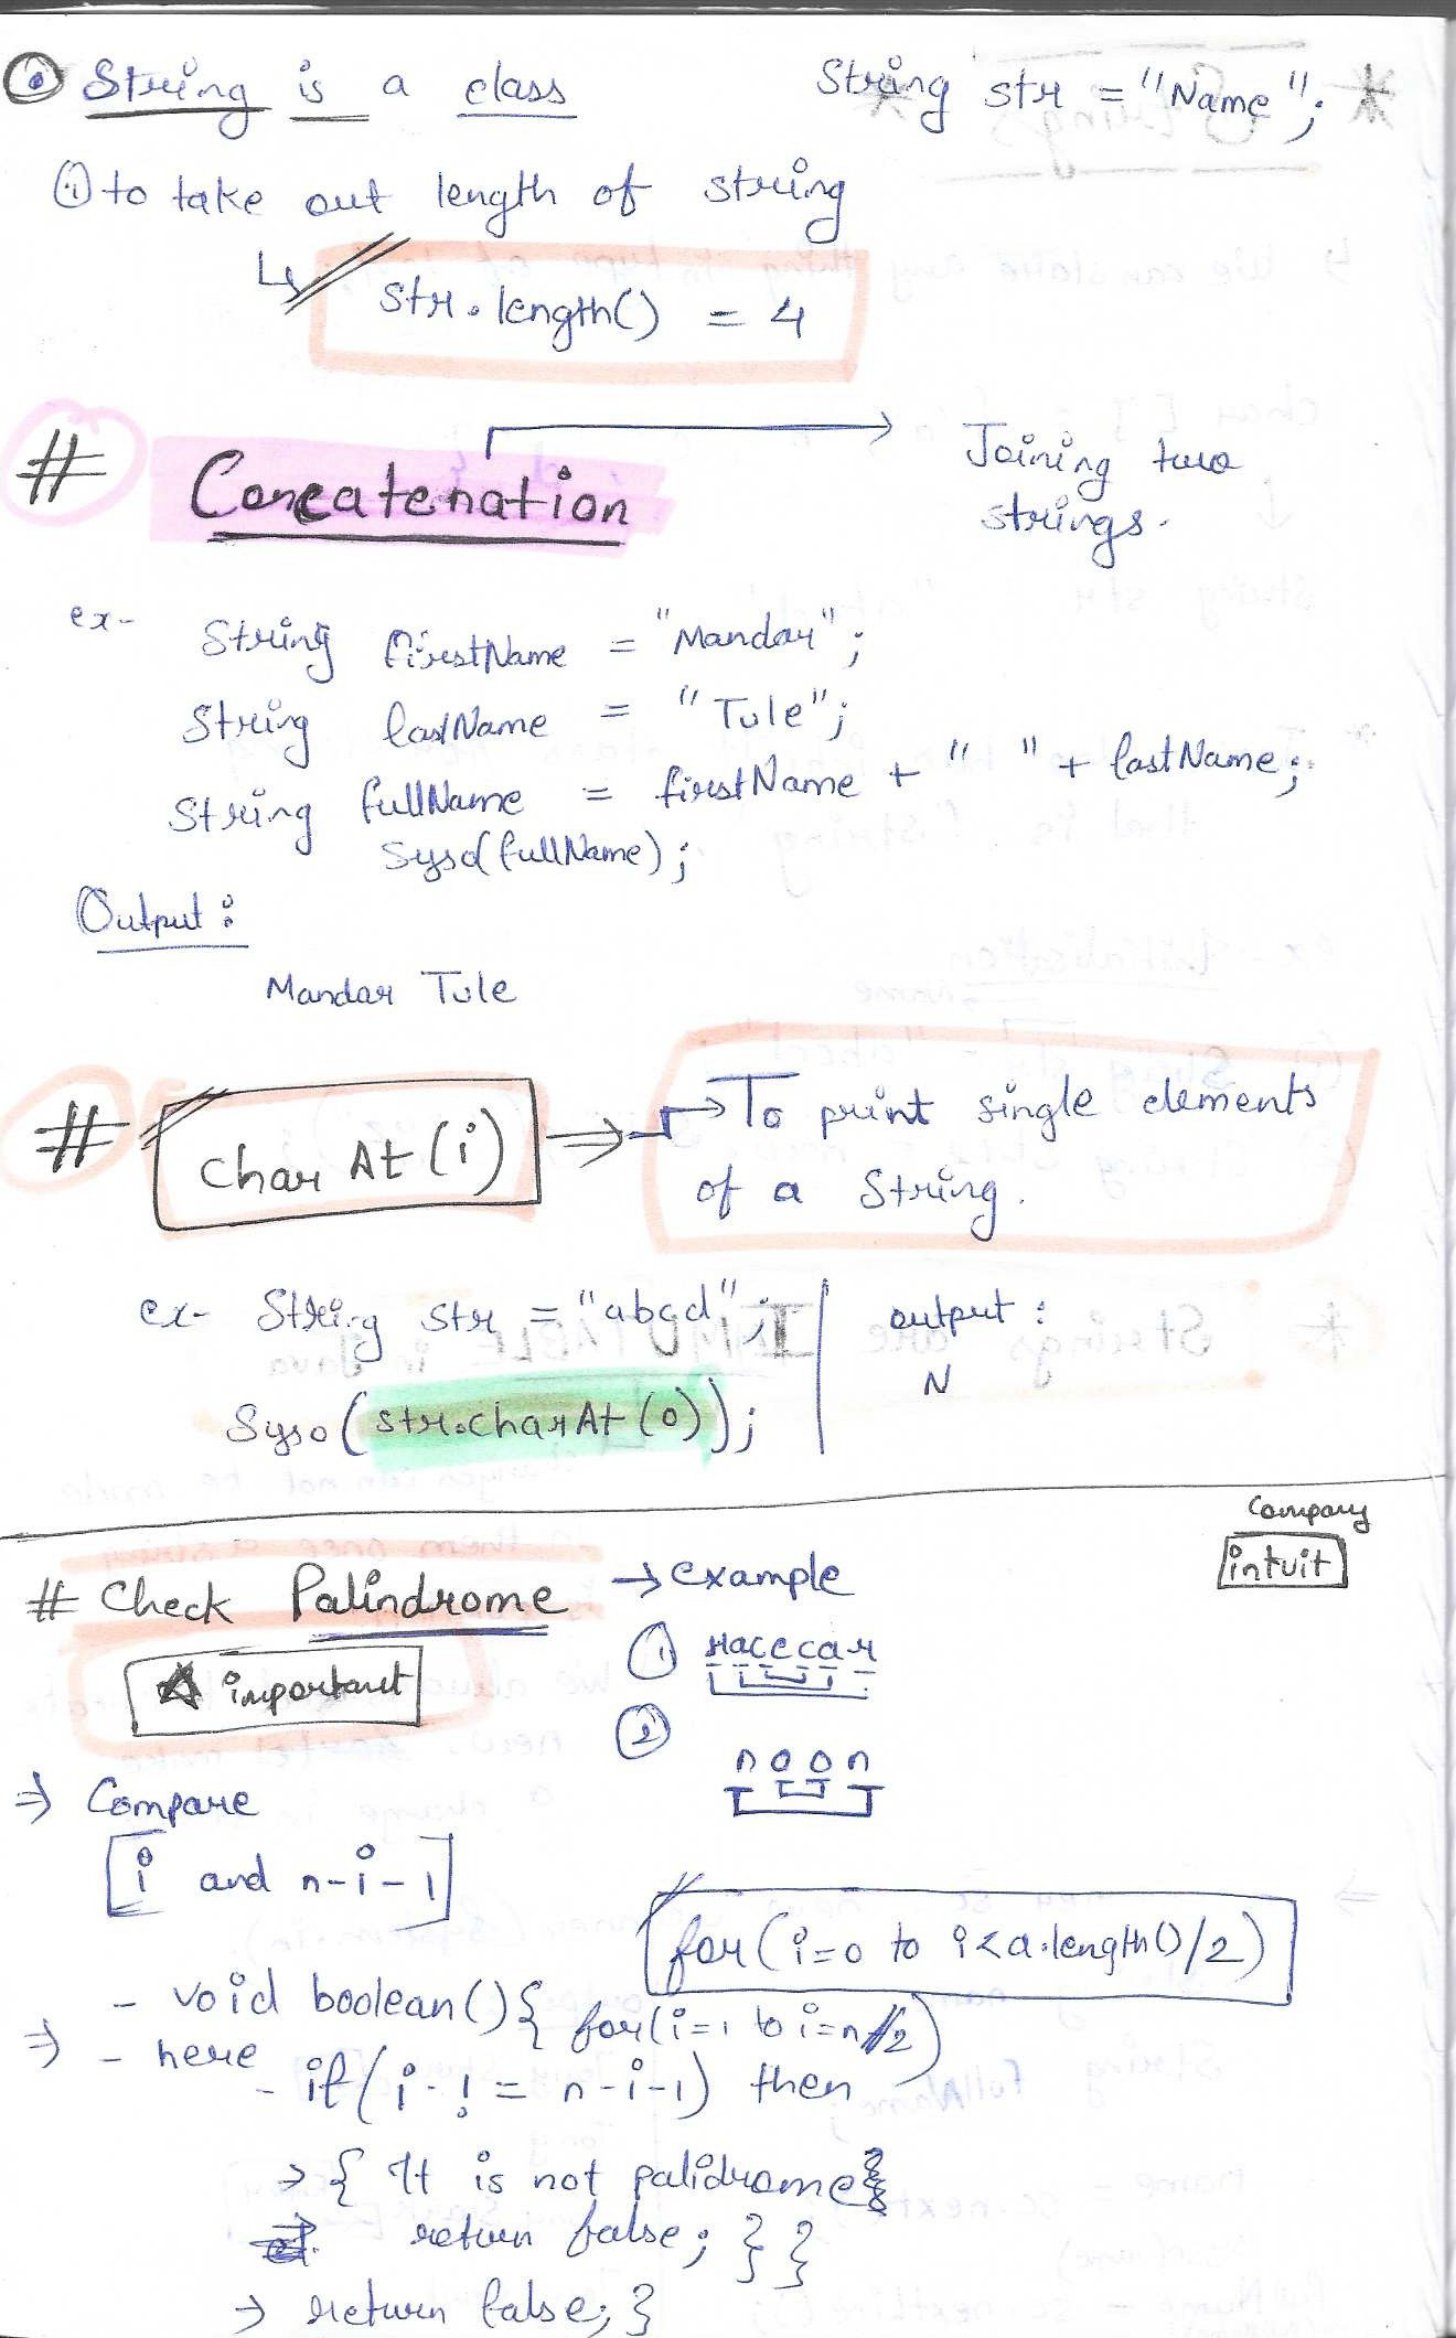 String is a class String str = "Name";
① to take out length of string
↳ str.length() = 4
# Concatenation → Joining two
strings.
ex- String firstName = "Mandar";
String lastName = "Tule";
String fullName = firstName + " " + lastName;
Syso(fullName);
Output:
Mandar Tule
# charAt(i) ⇒ → To print single elements
of a String.
ex- String str = "abcd"; output:
Syso(str.charAt(0)); N
Company
intuit
# Check Palindrome → example
① racecar
important
② noon
⇒ Compare
[i and n-i-1]
for(i=0 to i<a.length()/2)
- void boolean(){ for(i=1 to i=n/2)
⇒ - here
- if(i != n-i-1) then
→ { It is not palidrome}
return false; } }
→ return false; }